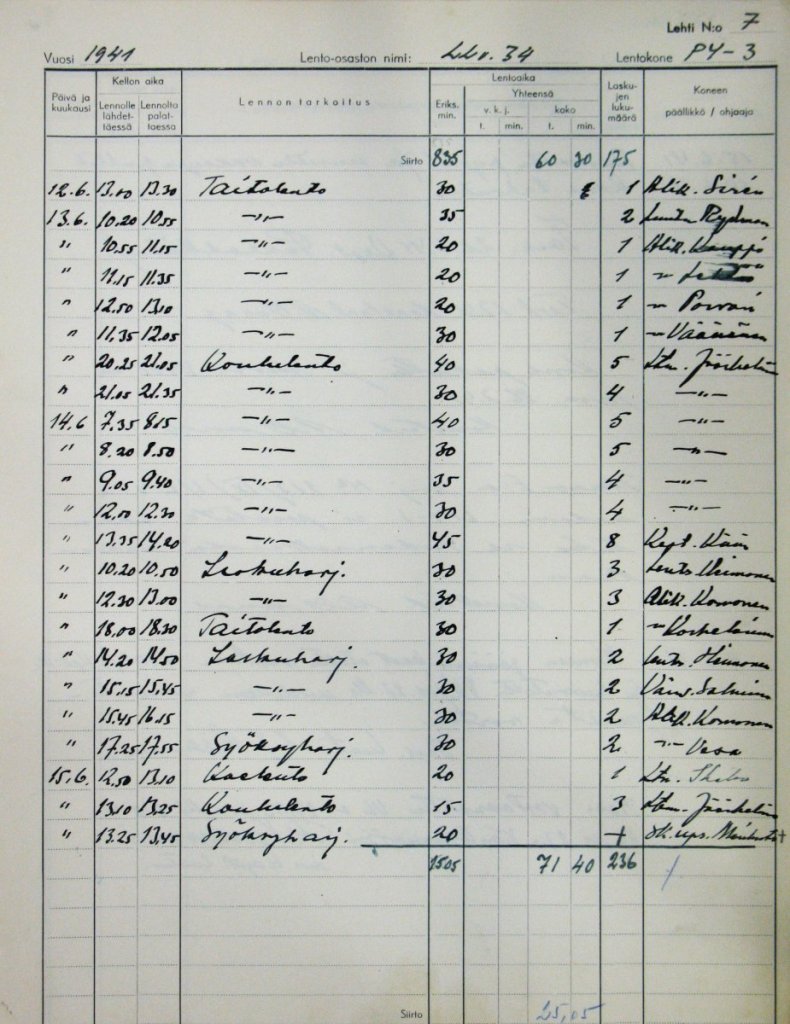 Lehti N:o 7
Vuosi 1941 Lento-osaston nimi: LLv. 34 Lentokone PY-3
Päivä ja kuukausi Kellon aika Lennolle lähdettäessä Lennolta palattaessa Lennon tarkoitus Lentoaika Eriks. min. Yhteensä v. k. j. t. min. koko t. min. Laskujen lukumäärä Koneen päällikkö / ohjaaja
Siirto 835 60 30 175
12.6. 13.00 13.30 Taitolento 30 1 Alik. Sirén
13.6. 10.20 10.55 —"— 35 2 Luutn. Rydman
" 10.55 11.15 —"— 20 1 Alik. Kauppi
" 11.15 11.35 —"— 20 1 "
" 12.50 13.10 —"— 20 1 " Porvari
" 11.35 12.05 —"— 30 1 " Väänänen
" 20.25 21.05 Koululento 40 5 Ltm.
" 21.05 21.35 —"— 30 4 —"—
14.6 7.35 8.15 —"— 40 5 —"—
" 8.20 8.50 —"— 30 5 —"—
" 9.05 9.40 —"— 35 4 —"—
" 12.00 12.30 —"— 30 4 —"—
" 13.35 14.20 —"— 45 8 Kapt.
" 10.20 10.50 Laskuharj. 30 3 Luutn.
" 12.30 13.00 —"— 30 3 Alik. Komonen
" 18.00 18.30 Taitolento 30 1 "
" 14.20 14.50 Laskuharj. 30 2 Luutn.
" 15.15 15.45 —"— 30 2 Vänr. Salminen
" 15.45 16.15 —"— 30 2 Alik. Komonen
" 17.25 17.55 Syöksyharj. 30 2 " Vesa
15.6. 12.50 13.10 Koelento 20 1 Ltn.
" 13.10 13.25 Koululento 15 3 Ltm.
" 13.25 13.45 Syöksyharj. 20 + †
1505 71 40 236
Siirto 25,05